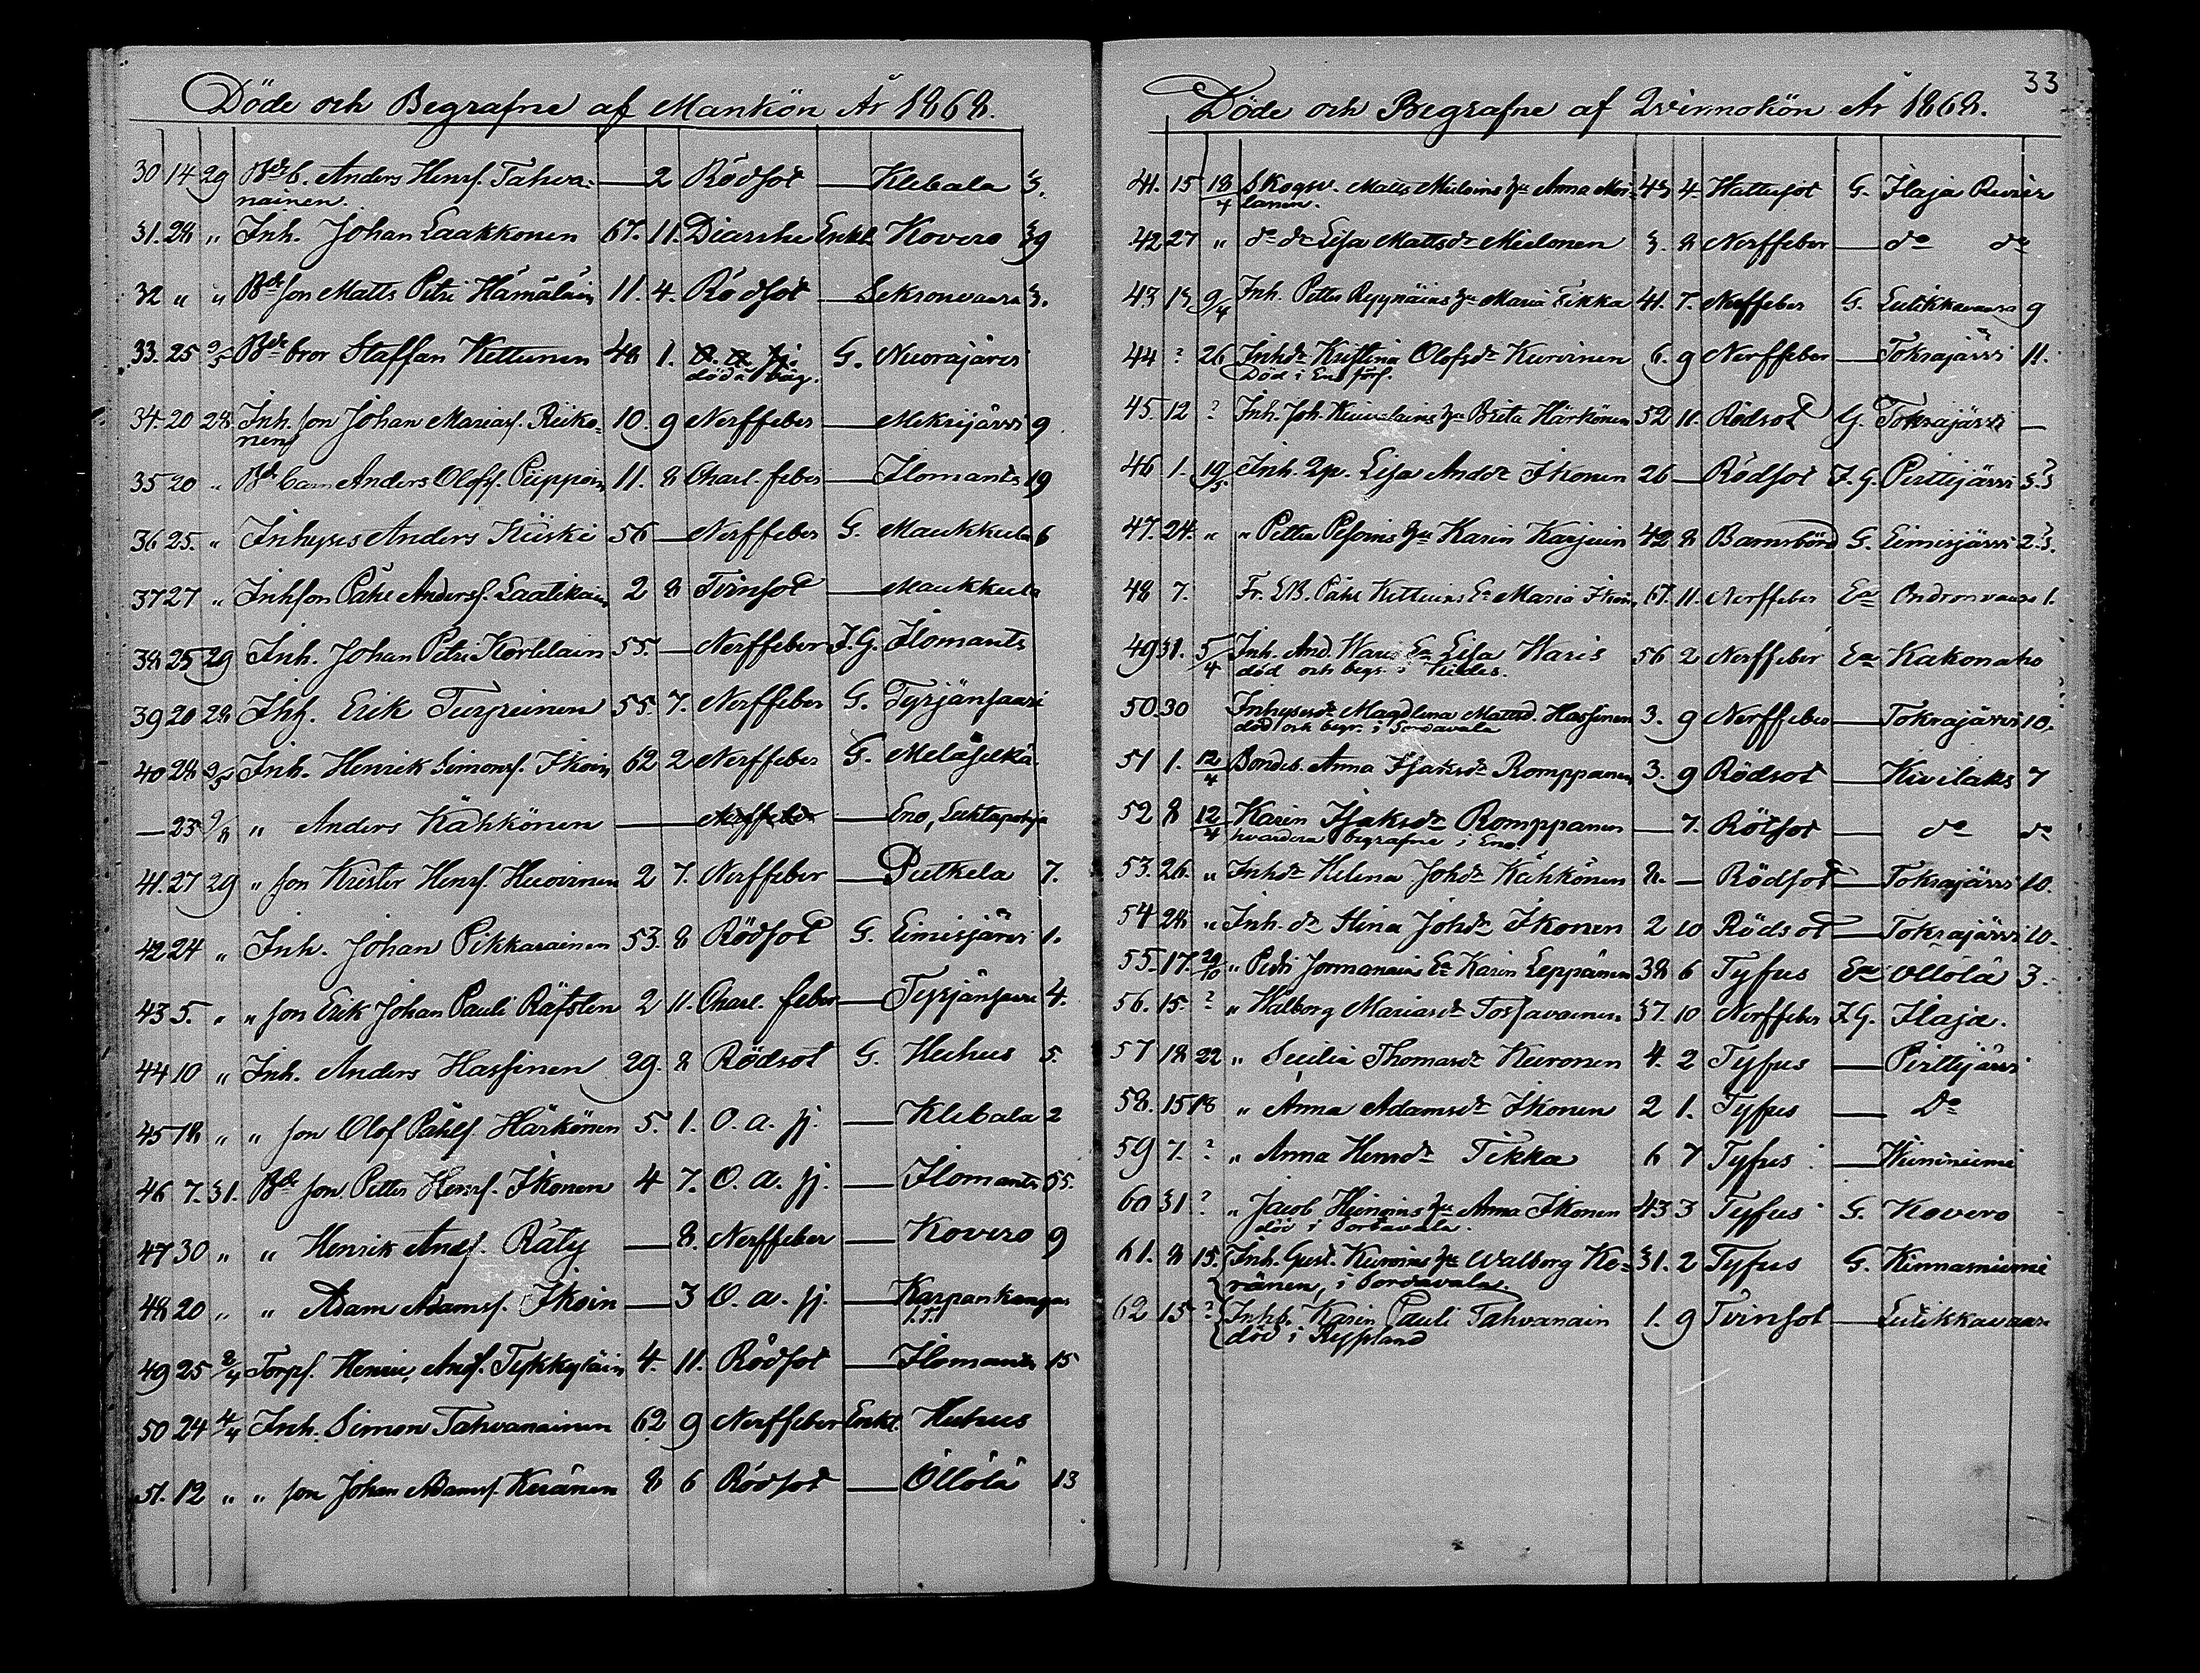 Döde och Begrafne af Mankön År 1868.
30 14 29 Bde b. Anders Henrs. Tahva= — 2 Rödsot — Klebala 3.
nainen.
31. 28 " Inh. Johan Laakkonen 67. 11. Diarrhe Enkl. Kovero 39
32 " " Bde son Matts Petri Hämäläin 11. 4. Rödsot — Sekronvaara 3.
33. 25 9/5 Bde bror Staffan Kettunen 48 1. G. Nuorajärvi
död å
34. 20 28. Inh. son Johan Marias. Riiko= 10. 9 Nerffeber — Mekrijärvi 9
nens
35 20 " Bde barn Anders Olofs. Piippoin 11. 8 Charl. feber — Ilomants 19
36 25. " Inhyses Anders Kiiski 56 — Nerffeber G. Maukkula 6
37 27 " Inhson Påhl Anders. Laatikain 2 8 Tvinsot — Maukkula
38 25 29 Inh. Johan Petri Korhlain 55. — Nerffeber F. G. Ilomants
39 20 28 Inh. Erik Turpeinen 55. 7. Nerffeber G. Tyrjänsaari
40 28 Inh. Henrik Simons. Ikoin 62 2 Nerffeber G. Meläselkä
— 23 " Anders Kähkönen — Nerffeber — Eno, Luhtapohja
41. 27 29 " son Krister Henrs. Huovinen 2 7. Nerffeber — Putkela 7.
42 24 " Inh. Johan Pikkarainen 53. 8 Rödsot G. Eimisjärvi 1.
43 5. " " son Erik Johan Pauli Räfsten 2 11. Charl. feber — Tyrjänsaari 4.
44 10 " Inh. Anders Hassinen 29. 8 Rödsot G. Huhus 5.
45 18 " " son Olof Påhls. Härkönen 5. 1. O. a. sj. — Klebala 2
46 7. 31. Bde son Petter Henrs. Ikonen 4 7. O. a. sj. — Ilomants 55.
47 30 " " Henrik Ands. Räty — 8. Nerffeber — Kovero 9
48 20 " " Adam Adams. Ikoin — 3 O. a. sj. — Karpankangas
49 25 2/4 Torps. Henric Ands. Tykkyläin 4. 11. Rödsot — Ilomants 15
50 24 4/4 Inh. Simon Tahvanainen 62 9 Nerffeber Enkl. Huhus
51. 12 " " son Johan Adams. Keränen 8 6 Rödsot — Öllölä 13
33
Döde och Begrafne af Qvinnokön År 1868.
41. 15 18/4 Skogsv. Matts Mieloins hu Anna Moi= 43 4. Hattusot G. Ilaja Revier
lanen.
42 27 " do dr Lisa Mattsdr Mielonen 3. 8 Nerffeber — do do
43 13 9/4 Inh. Petter Ryynäins hu Maria Tikka 41. 7. Nerffeber G. Lutikkavaara 9
44 ? 26 Inhdr Kristina Olofsdr Kurvinen 6. 9 Nerffeber — Tokrajärvi 11.
Död i Eno förs.
45 12 ? Inh. Joh. hu Brita Härkönen 52 11. Rödsot G. Tokrajärvi —
46 1. 19/5. Inh. Qp. Lisa Andsdr Ikonen 26 — Rödsot F. G. Perttijärvi 3.3
47. 24. " " Petter Pesoins hu Karin Karjuin 42 8 Barnsbörd G. Eimisjärvi 2.3.
48 7. Fr. LB. Påhl Kettuins Ea Maria Ikoin 67. 11. Nerffeber Ea Ondronvaara 1.
49 31. 5/4 Inh. And. Waris Ea Lisa Haris 56 2 Nerffeber Ea Kakonaho
död och begr. i Kides.
50. 30 Inhysesdr Magdlena Mattsd. Hassinen 3. 9 Nerffeber — Tokrajärvi 10.
död och begr. i Sordavala
51 1. 12/4 Bondeb. Anna Isaksdr Romppanen 3. 9 Rödsot — Kivilaks 7
52 8 12/4 Karin Isaksdr Romppanen — 7. Rötsot — do do
hvardera begrafne i Eno.
53. 26. " Inhdr Helena Johdr Kähkönen 8. — Rödsot — Tokrajärvi 10.
54 28 " Inh. dr Stina Johdr Ikonen 2 10 Rödsot — Tokrajärvi 10.
55. 17. 29/10 " Petri Jormanains Ea Karin Leppänen 38 6 Tyfus Ea Öllölä 3.
56. 15. ? " Walborg Mariasdr Tossavainen 37. 10 Nerffeber F. G. Ilaja.
57 18 22 " Secilia Thomasdr Kuronen 4. 2 Tyfus — Perttijärvi
58. 15 18 " Anna Adamsdr Ikonen 2 1. Tyfus — Do
59 7. ? " Anna Henrdr Tikka 6 7 Tyfus —
60 31 ? " Jacob hu Anna Ikonen 43 3 Tyfus G. Kovero
död i Sordavala.
61. 8 15. Inh. Gust. Kuroins hu Walborg Ke= 31. 2 Tyfus G. Kinnasniemi
ränen, i Sordavala.
62 15 ? Inhb. Karin Pauli Tahvanain 1. 9 Tvinsot — Lutikkavaara
död i Ryssland